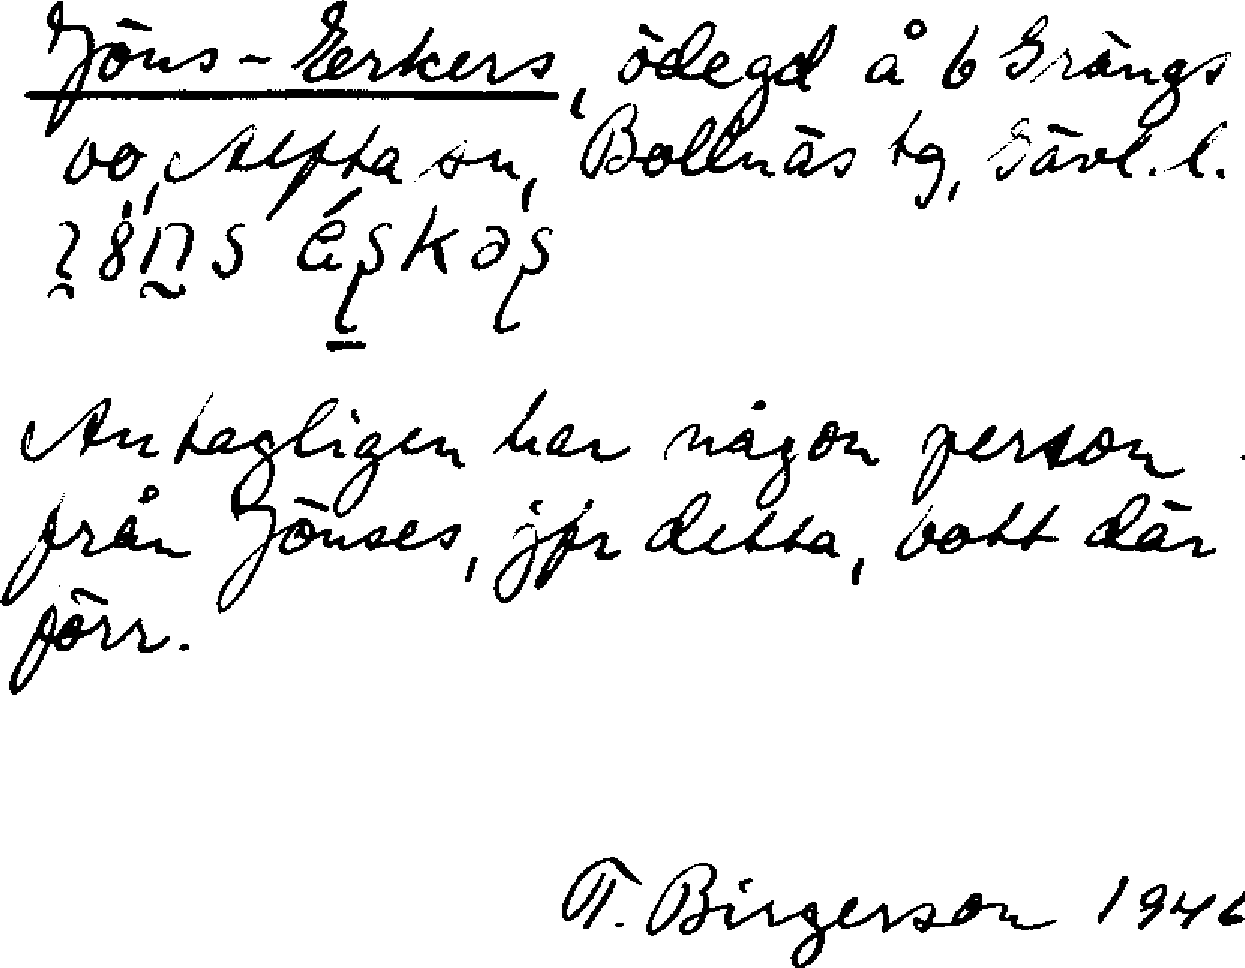 Jöns-Eerkers, ödegd å 6 Grängs
bo, Alfta sn, Bollnäs tg, Gävl. l.
Antagligen har någon person
från Jönses, jfr detta, bott där
förr.
T. Birgerson 1946